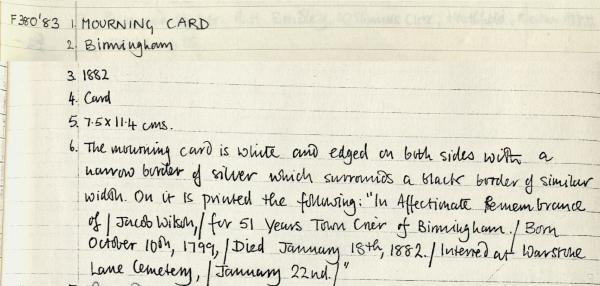 F380'83 1. MOURNING CARD
2. Birmingham
3. 1882
4. Card
5. 7.5 x 11.4 cms.
6. The mourning card is white and edged on both sides with a
narrow border of silver which surrounds a black border of similar
width. On it is printed the following: "In Affectionate Remembrance
of / Jacob Wilson, / for 51 Years Town Crier of Birmingham. / Born
October 10th, 1799, / Died January 18th, 1882. / Interred at Warstone
Lane Cemetery, / January 22nd. /"